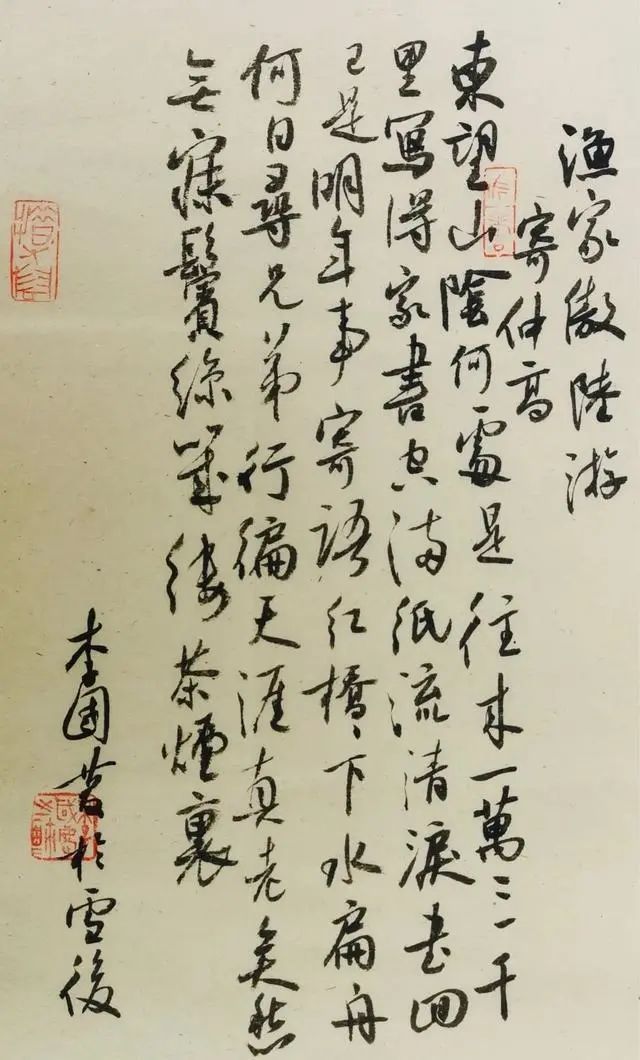 漁家傲陸游
寄仲高
東望山陰何處是往來一萬三千
里寫得家書空滿紙流清淚書回
已是明年事寄語紅橋〻下水扁舟
何日尋兄弟行徧天涯真老矣愁
無寐鬢絲幾縷茶煙裏
李國於雪後